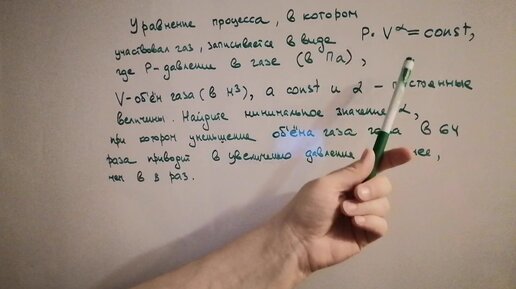 Уравнение процесса, в котором
участвовал газ, записывается в виде P·V^α = const,
где P-давление в газе (в Па),
V-объём газа (в м³), а const и α -
величины. Найдите минимальное значение α,
при котором уменьшение объёма газа газа в 64
раза приводит к увеличению давления
чем в 8 раз.